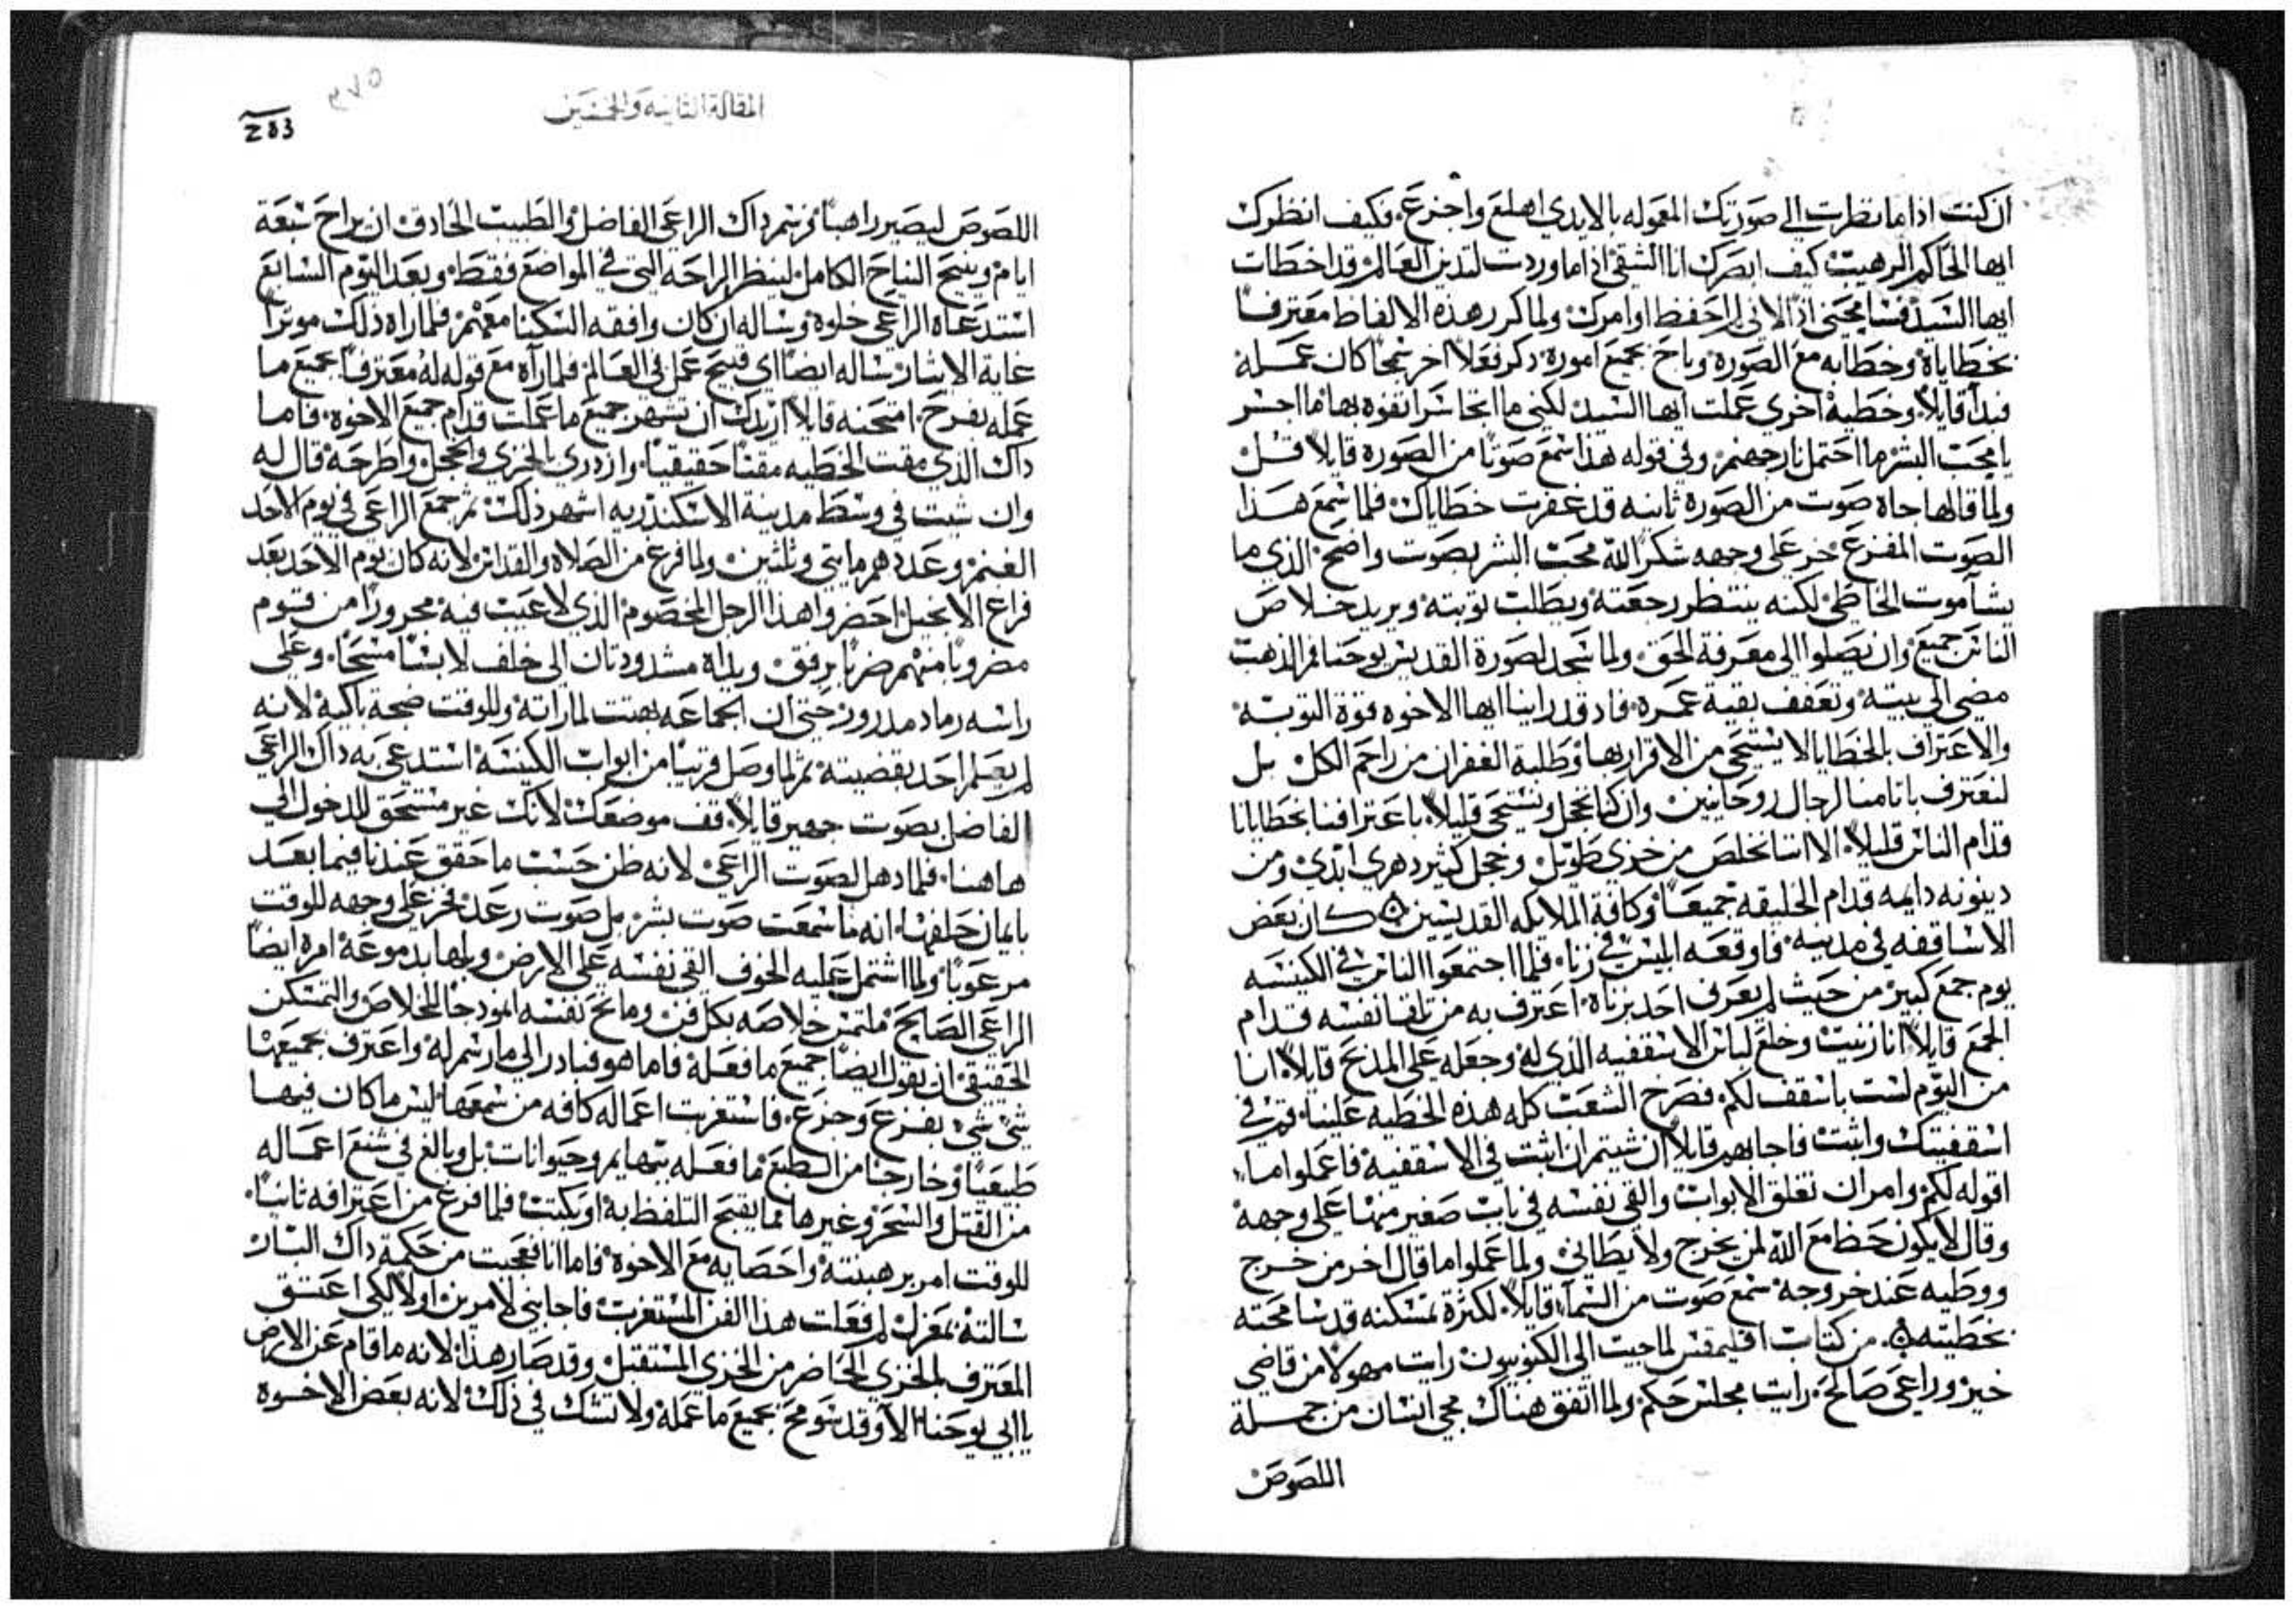 ان كنت اذا ما نظرت الى صورتك المعموله بالايدي اهلع واجزع. فكيف انظرك
ايها الحاكم الرهيب كيف ابصرك انا الشقي اذا ما وردت لتدين العالم قد اخطات
ايها السيد فسامحني اذ لاني لم احفظ اوامرك ولما كرر هذه الالفاظ معترفاً
بخطاياة وخطابه مع الصورة وباح بجميع امورة ذكر فعلاً اخر سمجاً كان عمله
فبدا قايلاً وخطية اخرى عملت ايها السيد لكني ما اتحاشر اتفوه بها ما اجسر
يا محب البشر ما احتمل نار جهنم. وفي قوله هذا سمع صوتاً من الصورة قايلاً قل
ولما قالها جاه صوت من الصورة ثانيه قد غفرت خطاياك فلما سمع هذا
الصوت المفزع خر على وجهه شكر الله محب البشر بصوت واضح الذي ما
يشآ موت الخاطي لكنه ينتظر رجعته ويطلب توبته ويريد خلاص
الناس جميع وان يصلوا الى معرفة الحق ولما سجد لصورة القديس يوحنا فم الذهب
مضى الى بيته وتعفف بقية عمره. فاد قد راينا ايها الاخوه قوة التوبة
والاعتراف بالخطايا لا يستحي من الاقرار بها وطلبة الغفران من راحم الكل بل
لنعترف باثامنا لرجال روحانيين وان كنا نخجل ونستحي قليلاً باعترافنا بخطايانا
قدام الناس قليلاً الا اننا نخلص من خزي طويل وخجل كثير دهري ابدي ومن
دينونه دايمه قدام الخليقه جميعاً وكافة الملايكه القديسين ⁘ كان بعض
الاساقفه في مدينه فاوقعه ابليس في زناه فلما اجتمعوا الناس في الكنيسه
يوم جمع كبير من حيث لم يعرف احد بزناة اعترف به من تلقا نفسه قدام
الجمع قايلاً انا زنيت وخلع لباس الاسقفيه الذي له وجعله على المذبح قايلاً انا
من اليوم لست باسقف لكم فصرخ الشعب كله هذه الخطيه علينا قم في
اسقفيتك واثبت فاجابهم قايلاً ان شيتم ان اثبت في الاسقفية فاعملوا ما
اقوله لكم وامر ان تغلق الابواب والقى نفسه في باب صغير منها على وجهة
وقال لا يكون حظ مع الله لمن يخرج ولا يطاني ولما عملوا ما قال اخر من خرج
ووطيه عند خروجة سمع صوت من السمآ قايلاً لكثرة تمسكنه قد سامحته
بخطيته ⁘ من كتاب اقليمقس لما جيت الى الكنوبيون رايت مهولاً من قاضي
خير وراعى صالح. رايت مجلس حكم ولما اتفق هناك مجي انسان من جملة
اللصوص
المقالة الثانيه والخمسين
٣٧٥
283
اللصوص ليصير راهباً فرسم داك الراعي الفاضل والطبيب الحادق ان يراح سبعة
ايام وينيح النياح الكامل لينظر الراحه التي في المواضع فقط وبعد اليوم السابع
استدعاه الراعي خلوة وساله ان كان وافقه السكنا معهم. فلما راه ذلك موثراً
غاية الايثار ساله ايضاً اي قبيح عمل في العالم فلما رآه مع قوله له معترفاً بجميع ما
عمله بفرح. امتحنه قايلاً اريدك ان تشهر جميع ما عملت قدام جميع الاخوة. فاما
داك الذي مقت الخطيه مقتاً حقيقياً. وازدرى بالخزي والخجل واطرحه قال له
وان شيت في وسط مدينة الاسكندريه اشهر ذلك ثم جمع الراعي في يوم الاحد
الغنم وعددهم مايتي وثلثين ولما فرغ من الصلاه والقداس لانه كان يوم الاحد بعد
فراغ الانجيل احضروا هذا الرجل المخصوم الذي لا عيب فيه مجروراً من قوم
مضروباً منهم ضرباً برفق ويداه مشدودتان الى خلف لابسا مسحاً. وعلى
راسه رماد مدرور حتى ان الجماعه بهتت لما راته وللوقت ضجة باكية لانه
لم يعلم احد بقضيته ثم لما وصل قريباً من ابواب الكنيسه استدعى به داك الراعي
الفاضل بصوت جهير قايلاً قف موضعك لانك غير مستحق للدخول الى
هاهنا. فلما دهل لصوت الراعي لانه ظن حسب ما حقق عندنا فيما بعد
بايمان حلفها انه ما سمعت صوت بشر بل صوت رعد فخر على وجهه للوقت
مرعوباً ولما اشتمل عليه الخوف القى نفسه على الارض وبلها بدموعة امرة ايضاً
الراعي الصالح ملتمس خلاصه بكل فن ومانح نفسه انمودجاً للخلاص والتمسكن
الحقيقي ان يقول ايضاً جميع ما فعله فاما هو فبادر الى ما رسم له واعترف بجميعها
شي شي بفزع وجزع. فاستغربت اعماله كافه من سمعها ليس ما كان فيها
طبيعياً وخارجا من الطبع ما فعله ببهايم وحيوانات بل وبالغ في شنع اعماله
من القتل والسحر وغيرها مما يقبح التلفظ به او يكتب فلما فرغ من اعترافه ثانياً.
للوقت امر برهبنته واحصايه مع الاخوة فاما انا فعجبت من حكمة داك البار
سالته بمعزل لم فعلت هذا الفن المستغرب فاجابني لامرين اولاً لكي اعتق
المعترف بالخزي الحاضر من الخزي المستقبل وقد صار هذا لانه ما قام عن الارض
يا ابي يوحنا الا وقد سومح بجميع ما عمله ولا تشك في ذلك لانه بعض الاخوه